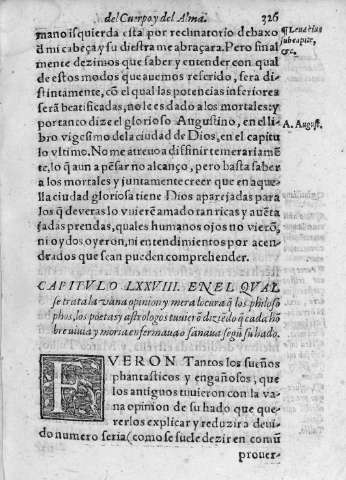 del Cuerpo y del Alma. 326
mano isquierda està por reclinatorio debaxo
d̃ mi cabeça y su diestra me abraçara. Pero final
mente dezimos que saber y entender con qual
de estos modos que auemos referido, sera di-
stintamente, cõ el qual las potencias inferiores
serã beatificadas, no les es dado a los mortales: y
por tanto dize el glorioso Augustino, en el li-
bro vigesimo de la ciudad de Dios, en el capitu
lo vltimo. No me atreuo a diffinir temerariamẽ
te, lo q̃ aun a pẽsar no alcanço, pero basta saber
a los mortales y juntamente creer que en aque-
lla ciudad gloriosa tiene Dios aparejadas para
los q̃ deueras lo vuierẽ amado tan ricas y auẽta
jadas prendas, quales humanos ojos no vierõ,
ni oydos oyeron, ni entendimientos por acen-
drados que sean pueden comprehender.
A. August.
CAPITVLO LXXVIII. EN EL QVAL
se trata la vana opinion y mera locura q̃ los philoso
phos, los poetas y astrologos tuuierõ diziẽdo q̃ cada hõ
bre viuia y moria enfermaua o sanaua segũ su hado.
FVERON Tantos los sueños
phantasticos y engañosos, que
los antiguos tuuieron con la va-
na opinion de su hado que que-
rerlos explicar y reduzir a deui-
do numero seria (como se suele dezir en comũ
prouer-